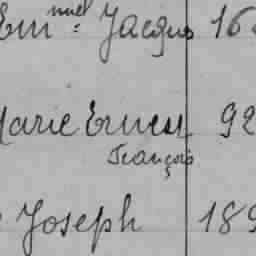 Emnuel Jacques 16
Marie Ernest 92
François
Joseph 189